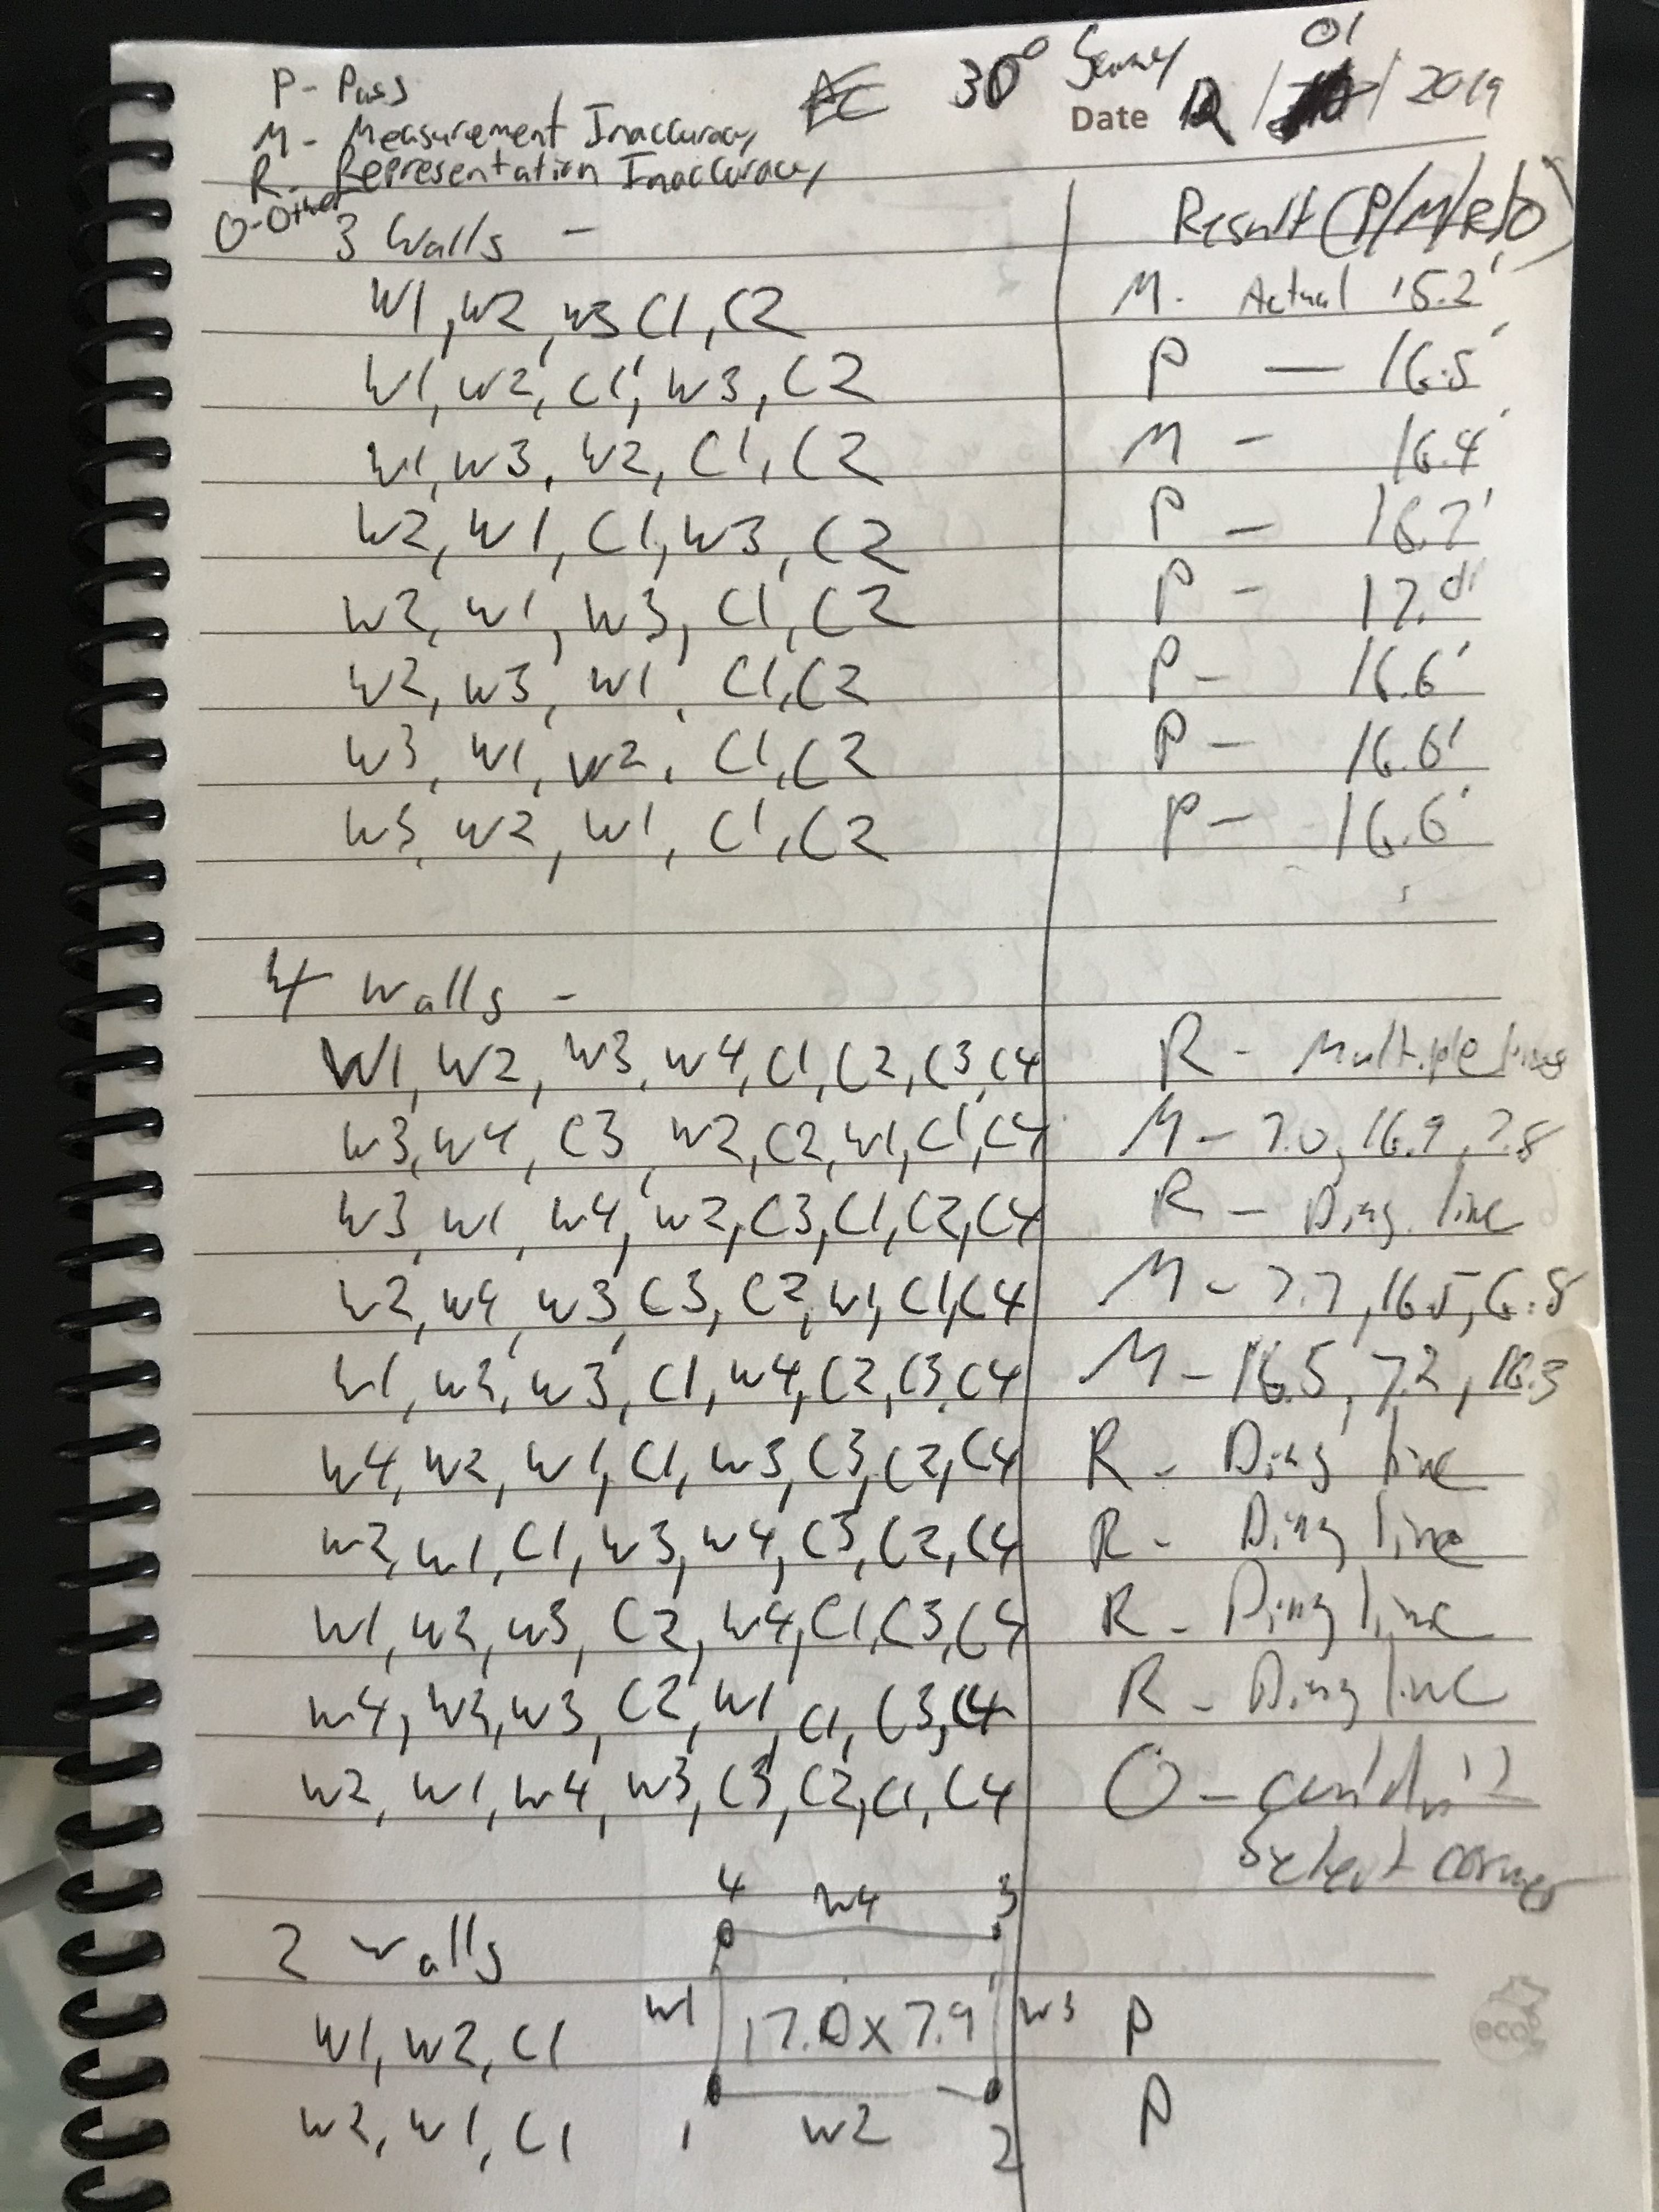 P - Pass
M - Measurement Inaccuracy
R - Representation Inaccuracy
O - Other
30°
01
Date 12 / / 2019
3 Walls - Result (P/M/R/O)
W1, W2, W3 C1, C2 M - Actual 15.2'
W1, W2, C1, W3, C2 P - 16.5'
W1, W3, W2, C1, C2 M - 16.4'
W2, W1, C1, W3, C2 P - 16.7'
W2, W1, W3, C1, C2 P - 17.0'
W2, W3, W1, C1, C2 P - 16.6'
W3, W1, W2, C1, C2 P - 16.6'
W3, W2, W1, C1, C2 P - 16.6'
4 Walls -
W1, W2, W3, W4, C1, C2, C3, C4 R - Multiple lines
W3, W4, C3, W2, C2, W1, C1, C4 M - 7.0, 16.9, 7.8
W3, W1, W4, W2, C3, C1, C2, C4 R - Diag. line
W2, W4, W3, C3, C2, W1, C1, C4 M - 7.7, 16.5, 6.8
W1, W2, W3, C1, W4, C2, C3, C4 M - 16.5, 7.2, 16.3
W4, W2, W1, C1, W3, C3, C2, C4 R - Diag line
W2, W1, C1, W3, W4, C3, C2, C4 R - Diag line
W1, W2, W3, C2, W4, C1, C3, C4 R - Diag line
W4, W2, W3, C2, W1, C1, C3, C4 R - Diag line
W2, W1, W4, W3, C3, C2, C1, C4 O - couldn't
Select corner
4 W4 3
2 walls
W1, W2, C1 W1 17.0 x 7.9' W3 P
eco
W2, W1, C1 1 W2 2 P